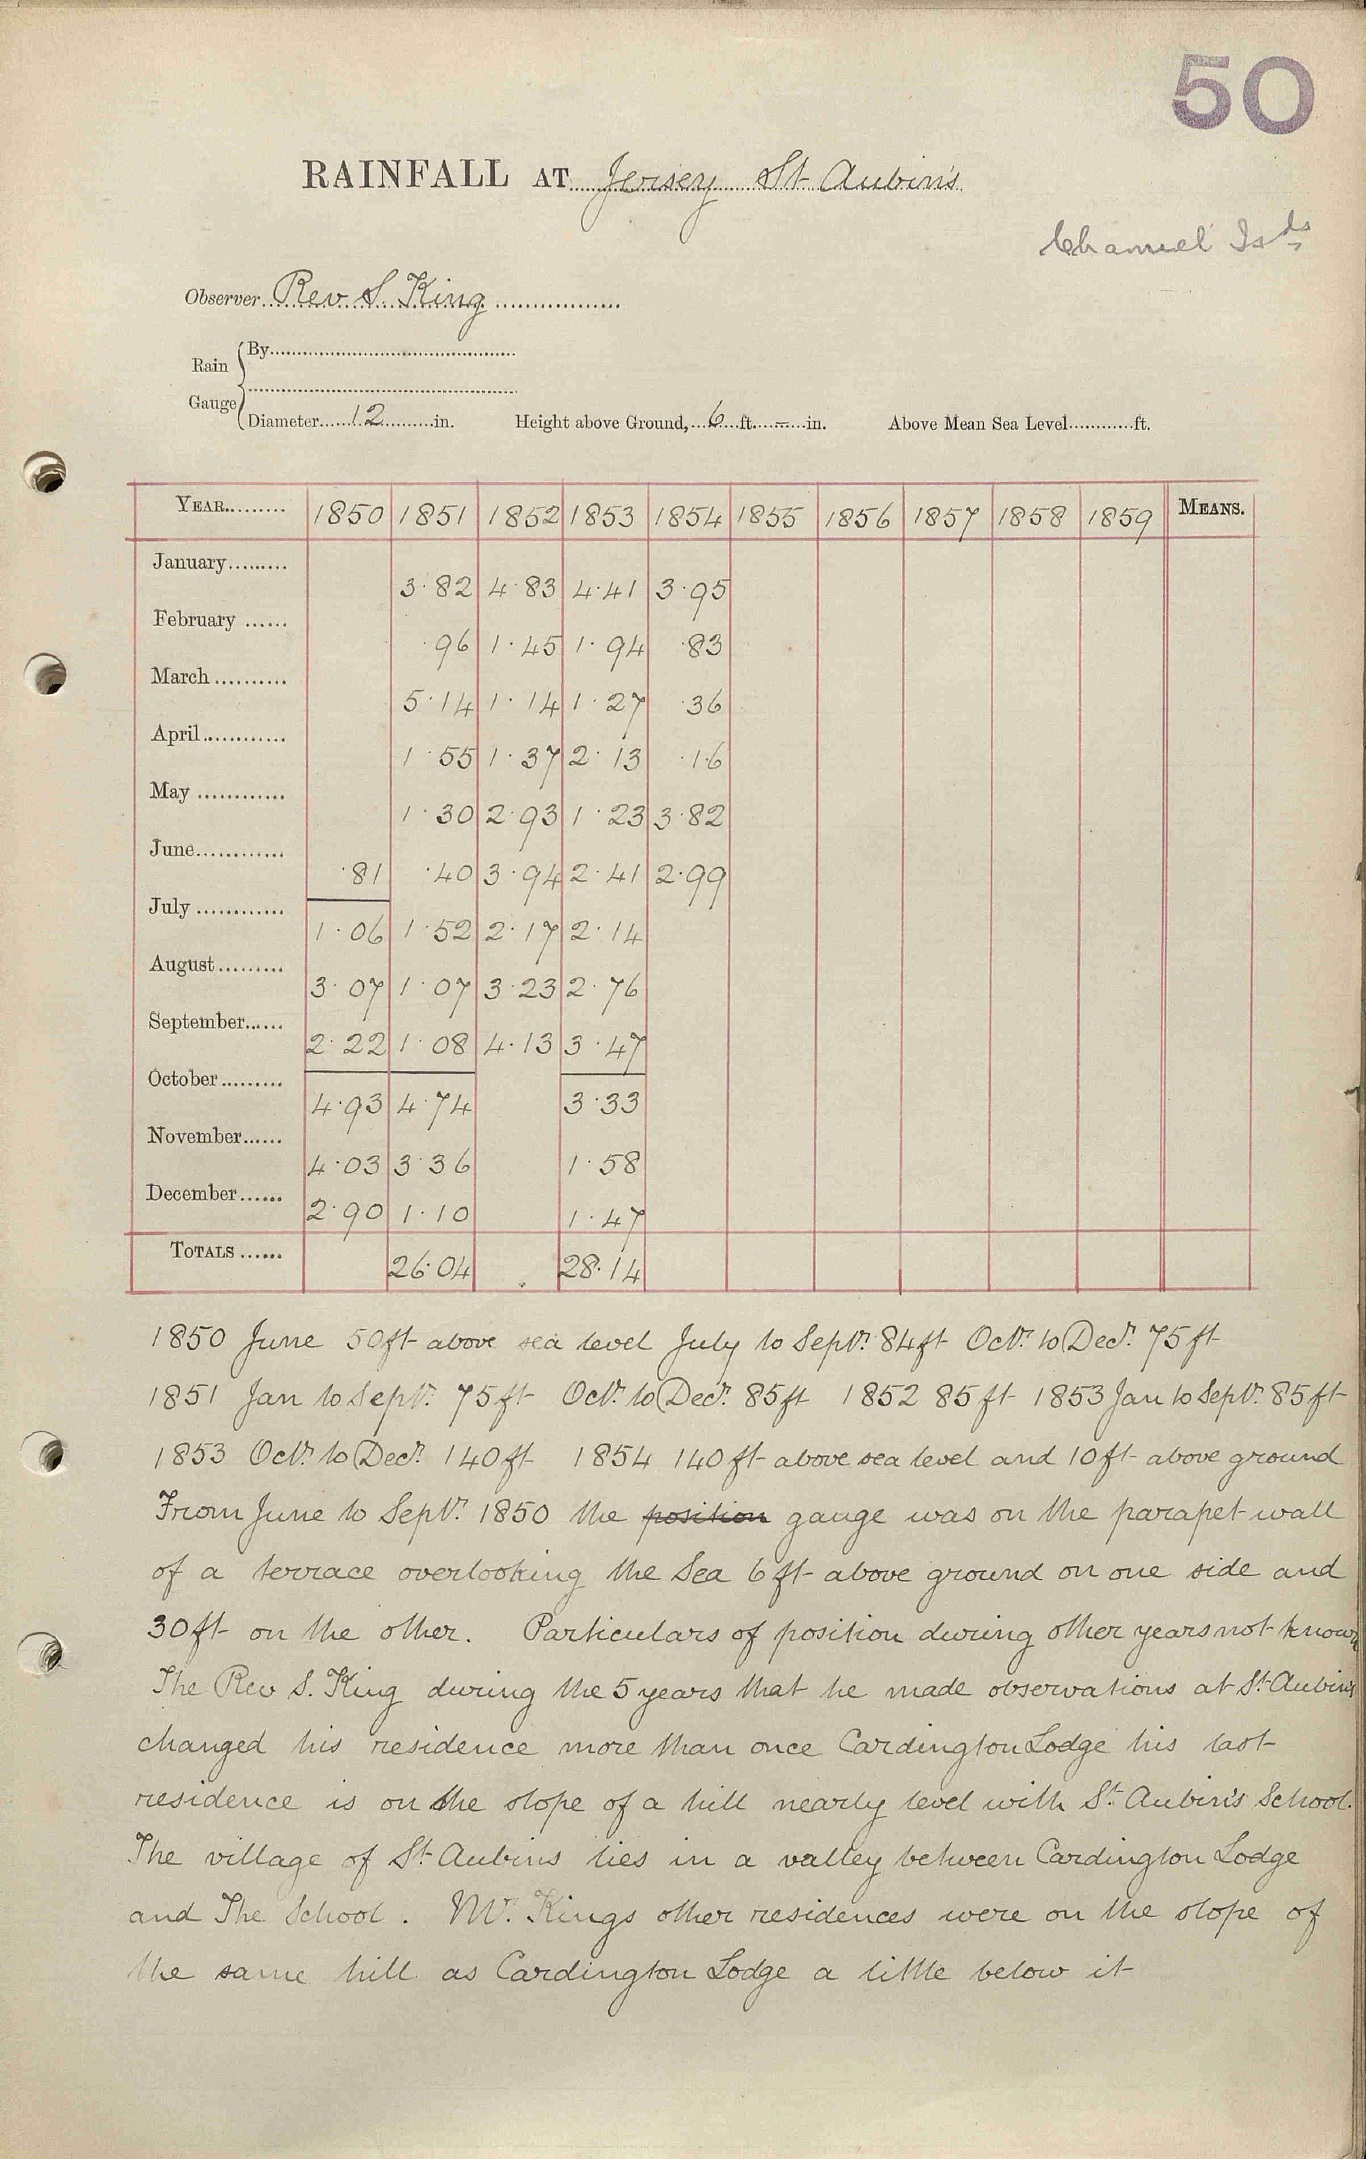 50
RAINFALL AT Jersey St Aubin's
Channel Isds
Observer Rev S. King
Rain Gauge { By
Diameter 12 in. Height above Ground, 6 ft. – in. Above Mean Sea Level ft.
YEAR 1850 1851 1852 1853 1854 1855 1856 1857 1858 1859 MEANS.
January 3.82 4.83 4.41 3.95
February .96 1.45 1.94 .83
March 5.14 1.14 1.27 .36
April 1.55 1.37 2.13 .16
May 1.30 2.93 1.23 3.82
June .81 .40 3.94 2.41 2.99
July 1.06 1.52 2.17 2.14
August 3.07 1.07 3.23 2.76
September 2.22 1.08 4.13 3.47
October 4.93 4.74 3.33
November 4.03 3.36 1.58
December 2.90 1.10 1.47
TOTALS 26.04 28.14
1850 June 50ft above sea level July to Septr. 84ft Octr. to Decr. 75ft
1851 Jan to Septr. 75ft Octr. to Decr. 85ft 1852 85ft 1853 Jan to Septr. 85ft
1853 Octr. to Decr. 140ft 1854 140ft above sea level and 10ft above ground
From June to Septr. 1850 the position gauge was on the parapet wall
of a terrace overlooking the Sea 6ft above ground on one side and
30ft on the other. Particulars of position during other years not known
The Rev S. King during the 5 years that he made observations at St Aubin's
changed his residence more than once Cardington Lodge his last
residence is on the slope of a hill nearly level with St Aubin's School.
The village of St Aubins lies in a valley between Cardington Lodge
and The School. Mr. Kings other residences were on the slope of
the same hill as Cardington Lodge a little below it